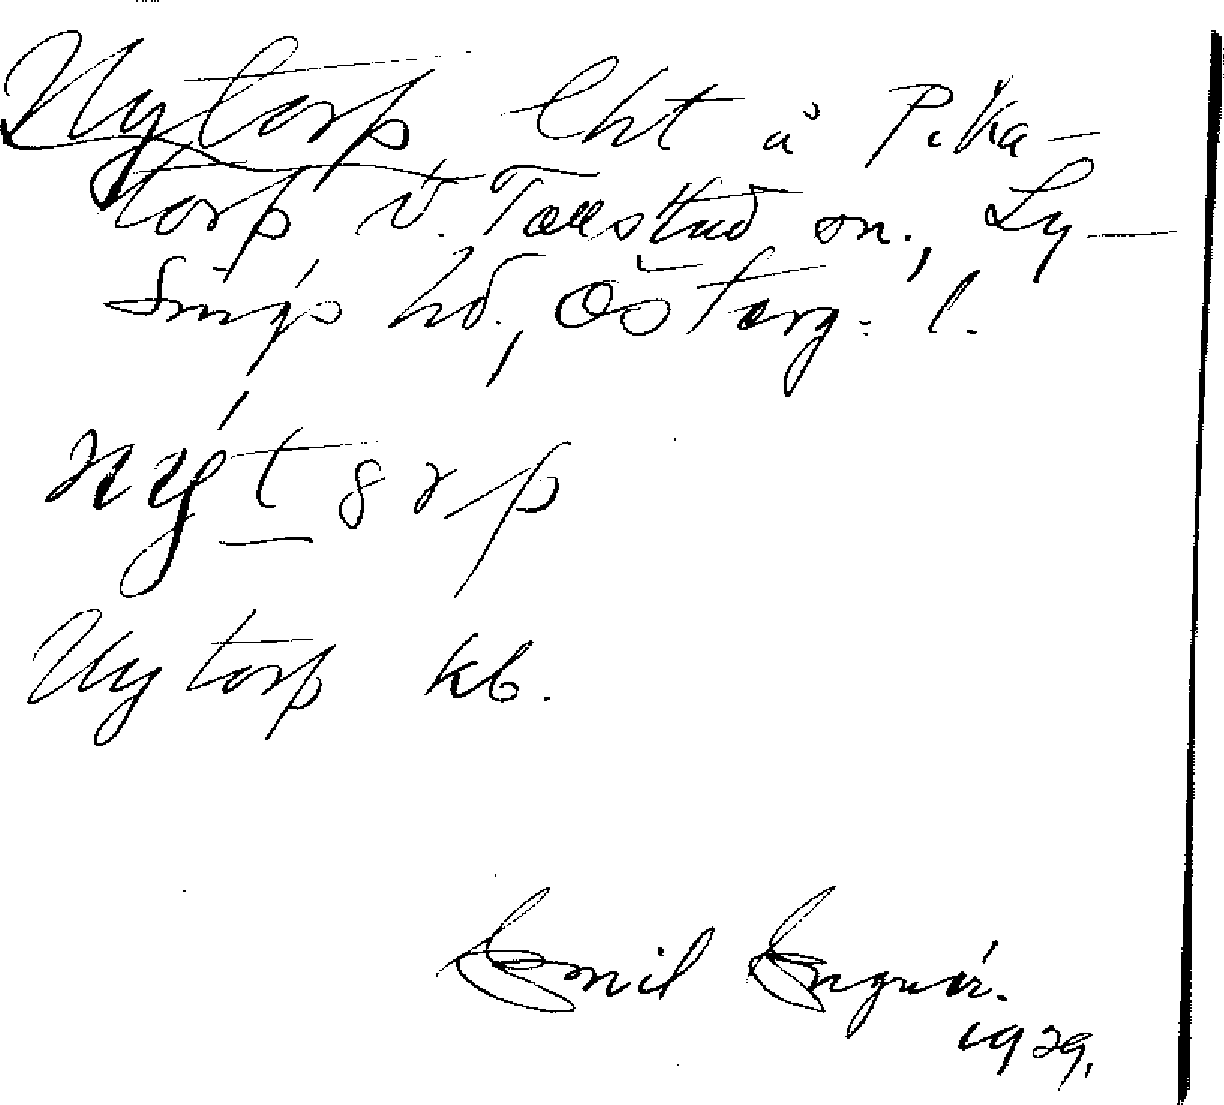 Nytorp lht å Pika-
torp V. Tollstad sn., Ly-
sings hd., Österg. l.
nýt8rp
Nytorp kb.
Emil Ingvar.
1929.